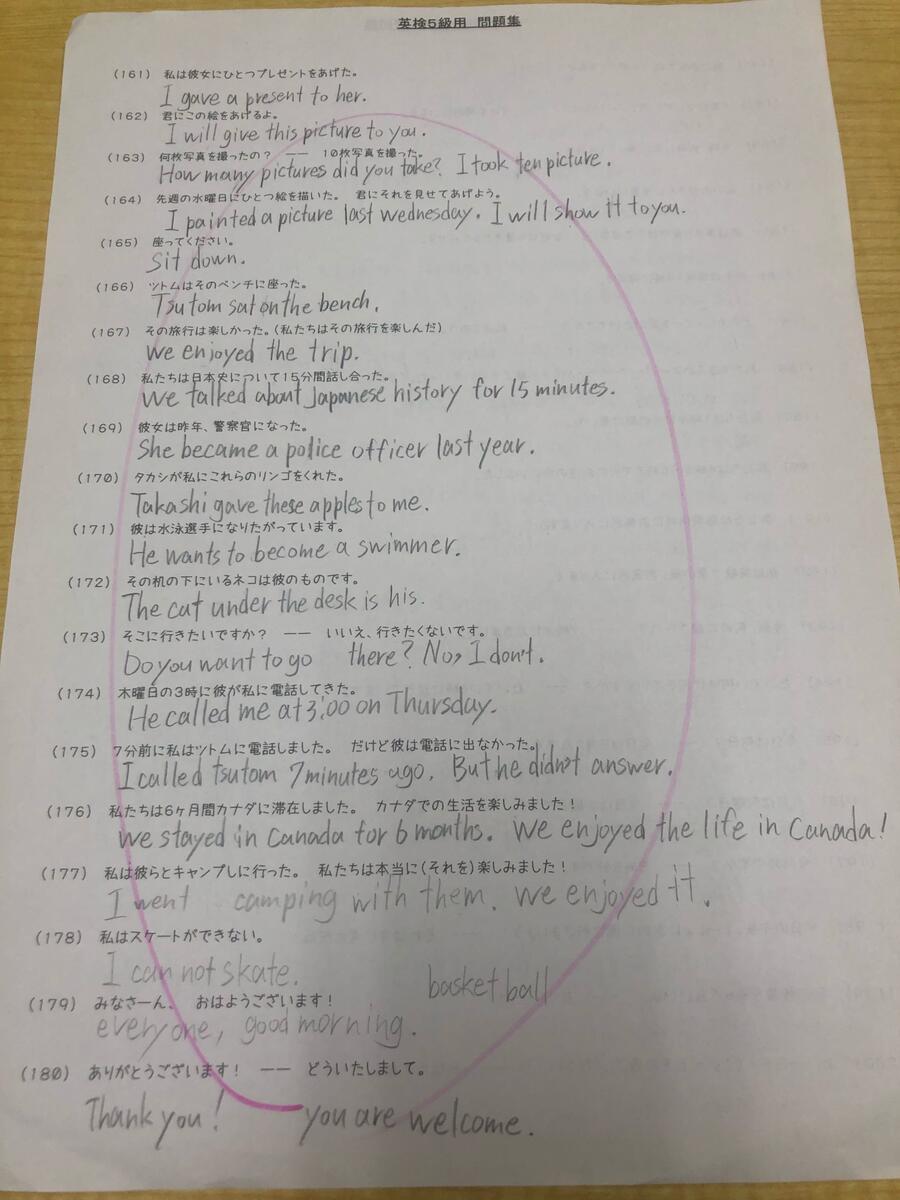 英検5級用 問題集
(161) 私は彼女にひとつプレゼントをあげた。
I gave a present to her.
(162) 君にこの絵をあげるよ。
I will give this picture to you.
(163) 何枚写真を撮ったの? ―― 10枚写真を撮った。
How many pictures did you take? I took ten picture.
(164) 先週の水曜日にひとつ絵を描いた。 君にそれを見せてあげよう。
I painted a picture last wednesday. I will show it to you.
(165) 座ってください。
Sit down.
(166) ツトムはそのベンチに座った。
Tsutom sat on the bench.
(167) その旅行は楽しかった。(私たちはその旅行を楽しんだ)
We enjoyed the trip.
(168) 私たちは日本史について15分間話し合った。
We talked about Japanese history for 15 minutes.
(169) 彼女は昨年、警察官になった。
She became a police officer last year.
(170) タカシが私にこれらのリンゴをくれた。
Takashi gave these apples to me.
(171) 彼は水泳選手になりたがっています。
He wants to become a swimmer.
(172) その机の下にいるネコは彼のものです。
The cat under the desk is his.
(173) そこに行きたいですか? ―― いいえ、行きたくないです。
Do you want to go there? No, I don't.
(174) 木曜日の3時に彼が私に電話してきた。
He called me at 3:00 on Thursday.
(175) 7分前に私はツトムに電話しました。 だけど彼は電話に出なかった。
I called Tsutom 7 minutes ago. But he didn't answer.
(176) 私たちは6ヶ月間カナダに滞在しました。 カナダでの生活を楽しみました!
We stayed in Canada for 6 months. We enjoyed the life in Canada!
(177) 私は彼らとキャンプしに行った。 私たちは本当に(それを)楽しみました!
I went camping with them. We enjoyed it.
(178) 私はスケートができない。
I can not skate.
basket ball
(179) みなさーん、 おはようございます!
everyone, good morning.
(180) ありがとうございます! ―― どういたしまして。
Thank you! you are welcome.